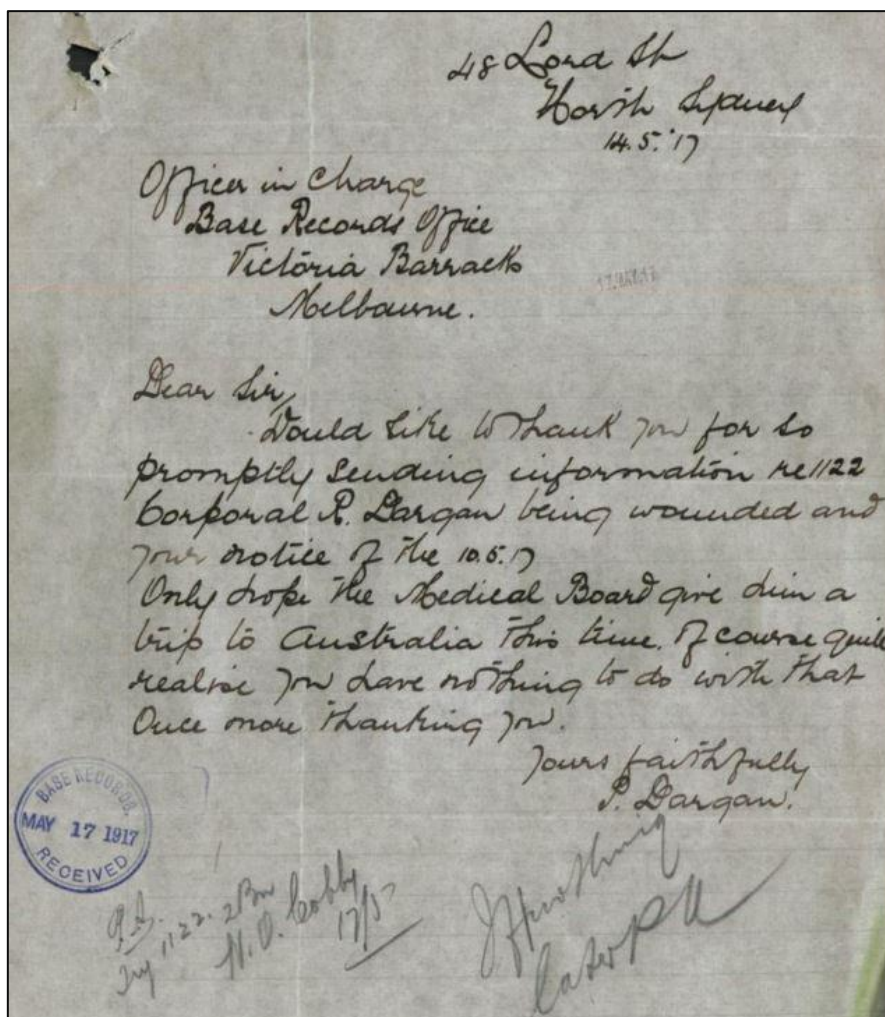 48 Lord St
North Sydney
14.5.'17
Officer in Charge
Base Records Office
Victoria Barracks
Melbourne.
17 MAY 17
Dear Sir,
Would like to thank you for so
promptly sending information re 1122
Corporal R. Dargan being wounded and
your notice of the 10.5.17
Only hope the Medical Board give him a
trip to Australia this time. Of course quite
realise you have nothing to do with that
Once more thanking you.
Yours faithfully
P. Dargan.
BASE RECORDS.
MAY 17 1917
RECEIVED
If nothing
later PA
1122. 2 Bn
17/5